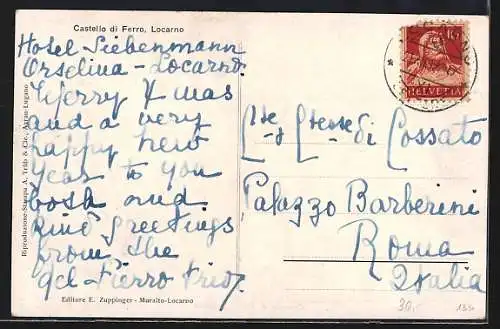 Castello di Ferro, Locarno
Hotel Siebenmann
Orselina - Locarno.
Merry Xmas
and a very
happy new
year to you
both and
kind greetings
from the
del Fierro Frid
Riproduzione-Stampa A. Trüb & Cie., Aarau-Lugano
Editore E. Zuppinger - Muralto-Locarno
10
HELVETIA
di Cossato
Palazzo Barberini
Roma
Italia
30.-